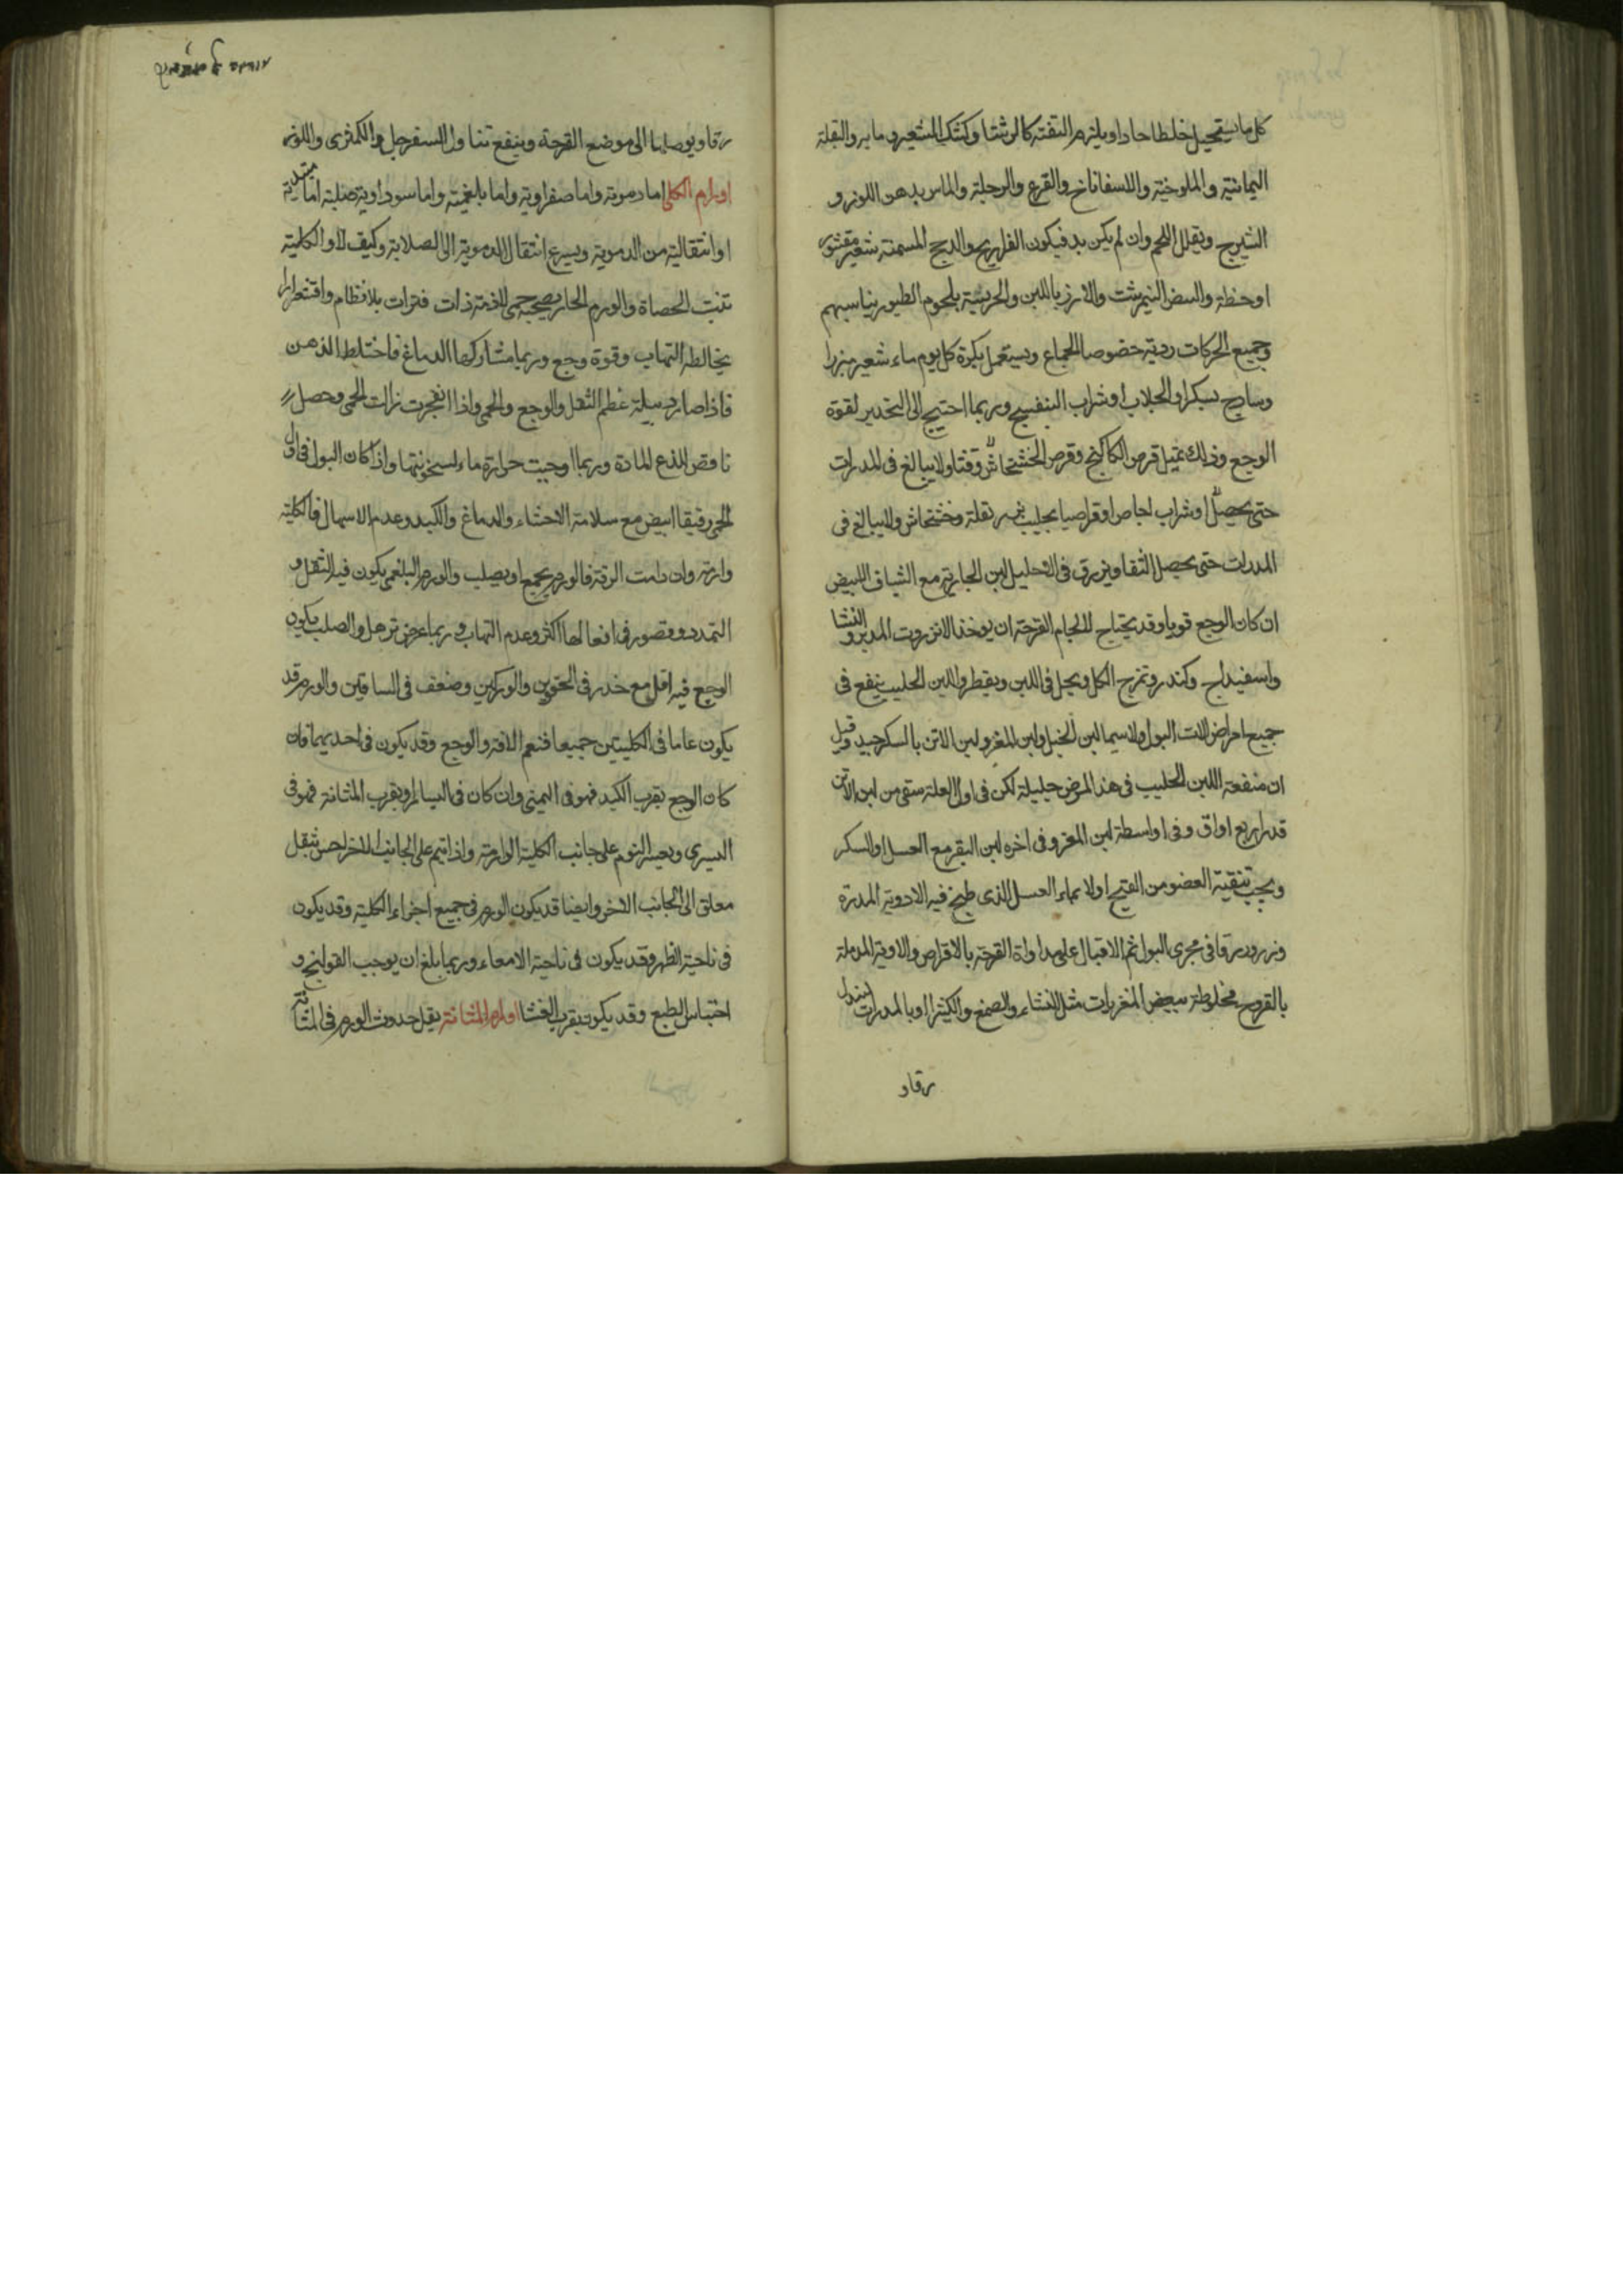 كل ما يستحيل خلطا حادا ويلتزم التفته كالرشتا وكشك الشعير وما برو البقلة
اليمانية والملوخية والاسفاناخ والقرع والرجلة والماس بدهن اللوز و
الشيرج ويقلل اللحم وان لم يكن بد فيكون الفراريج والدجج المسمنة بشعير مقشور
او حنطة والبيض النيمرشت والارز باللبن والحريسة بلحوم الطيور يناسبهم
وجميع الحركات ردية خصوصا الجماع ويستعمل بكرة كل يوم ماء شعير مبزرا
وساذج بسكر او الجلاب او شراب البنفسج وربما احتيج الى التخدير لقوة
الوجع وذلك بمثل قرص الكاكنج وقرص الخشخاش وقتا ولا يبالغ في المدرات
حتى يحصل او شراب اجاص او قراصيا بحليب بزر بقلة وخشخاش ولا يبالغ في
المدرات حتى يحصل النقا ويزرق في الاحليل لبن الجارية مع الشياف الابيض
ان كان الوجع قويا وقد يحتاج لالحام القرحة ان يوخذ الانزروت المدبر والنشا
واسفيداج وكندر وتمزج الكل ويحل في اللبن ويقطر واللبن الحليب ينفع في
جميع امراض الات البول ولاسيما لبن الخيل ولبن المعز ولبن الاتن بالسكر جيد وقيل
ان منفعة اللبن الحليب في هذا المرض جليلة لكن في اول العلة سقى من لبن الاتن
قدر اربع اواق وفي اواسطة لبن المعز وفي اخره لبن البقر مع العسل او السكر
ويجب تنقية العضو من القيح اولا بماء العسل الذى طبخ فيه الادوية المدرة
وزرور رقا في مجرى البول ثم الاقبال على مداواة القرحة بالاقراص والاوية المدملة
بالقروح مخلوطة ببعض المغريات مثل النشاء والصمغ والكثيرا او بالمدرات
رقاو
رقاو يوصلها الى موضع القرحة وينفع تناول السفرجل والكمثرى واللوز
اورام الكلى اما دموية واما صفراوية واما بلغمية واما سوداوية صلبة اما مبتدية
او انتقالية من الدموية ويسرع انتقال الدموية الى الصلابة وكيف لا والكلية
تنبت الحصاة والورم الحار يصحبه حمى لازمة ذات فترات بلا نظام واقشعرارا
يخالطه التهاب وقوة وجع وربما شاركها الدماغ فاختلط الذهن
فاذا صار دبيلة عظم الثقل والوجع والحمى واذا انفجرت زالت الحمى وحصل
نافض للذع المادة وربما اوجبت حرارة ماء لسخونتها واذا كان البول في اول
الحمى رقيقا ابيض مع سلامة الاحشاء والدماغ والكبد وعدم الاسهال فالكلية
وارمة وان دامت الرقة فالورم يجمع او يصلب والورم البلغمى يكون فيه الثقل و
التمدد وقصور في افعالها اكثر وعدم التهاب وربما عرض ترهل والصلب يكون
الوجع فيه اقل مع خدر في الحقوين والوركين وضعف في الساقين والورم قد
يكون عاما في الكليتين جميعا فتعم الافة والوجع وقد يكون في احديهما فان
كان الوجع بقرب الكبد فهو في اليمنى وان كان في اليسار او بقرب المثانة فهو في
اليسرى ويعسر النوم على جانب الكلية الوارمة واذا نيم على الجانب الاخر احس بثقل
معلق الى الجانب الاخر وايضا قد يكون الورم في جميع اجزاء الكلية وقد يكون
في ناحية الظهر وقد يكون في ناحية الامعاء وربما بلغ ان يوجب القولنج و
احتباس الطبع وقد يكون بقرب الغشا اورام المثانة يقل حدوث الورم في المثانة